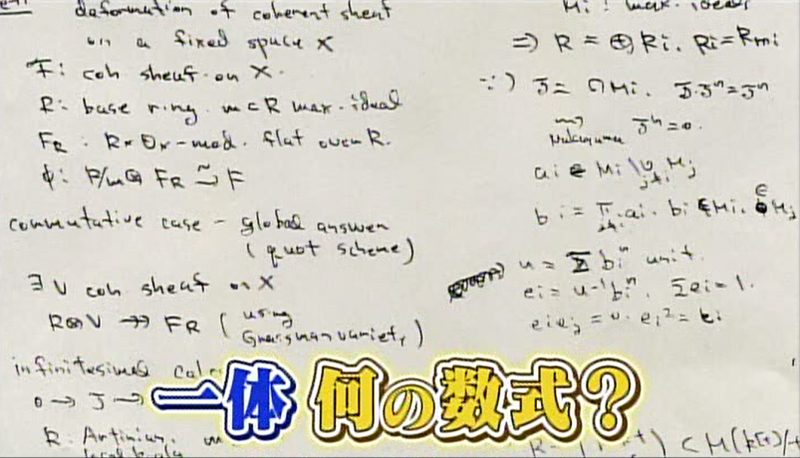 deformation of coherent sheaf
on a fixed space X
F: coh sheaf on X.
R: base ring. m⊂R max. ideal
F_R: R⊗O_X-mod. flat over R.
φ: R/m⊗F_R ⥲ F
commutative case - global answer
(quot scheme)
∃ V coh. sheaf on X
R⊗V ↠ F_R (using
Grassman variety)
infinitesimal
0 → J →
R: Artinian.
⇒ R = ⊕Ri. Ri=Rmi
∵) J = ∩Mi. J·J^n=J^n
J^n=0.
ai ∈ Mi \ ∪ Mj
j≠i
bi = π ai. bi ∉ Mi. ∈ Mj
j≠i
u = Σ bi^n unit.
ei = u⁻¹bi^n. Σei=1.
eiej = 0. ei²=ei
⊂ M(k[t]/t
一体 何の数式?